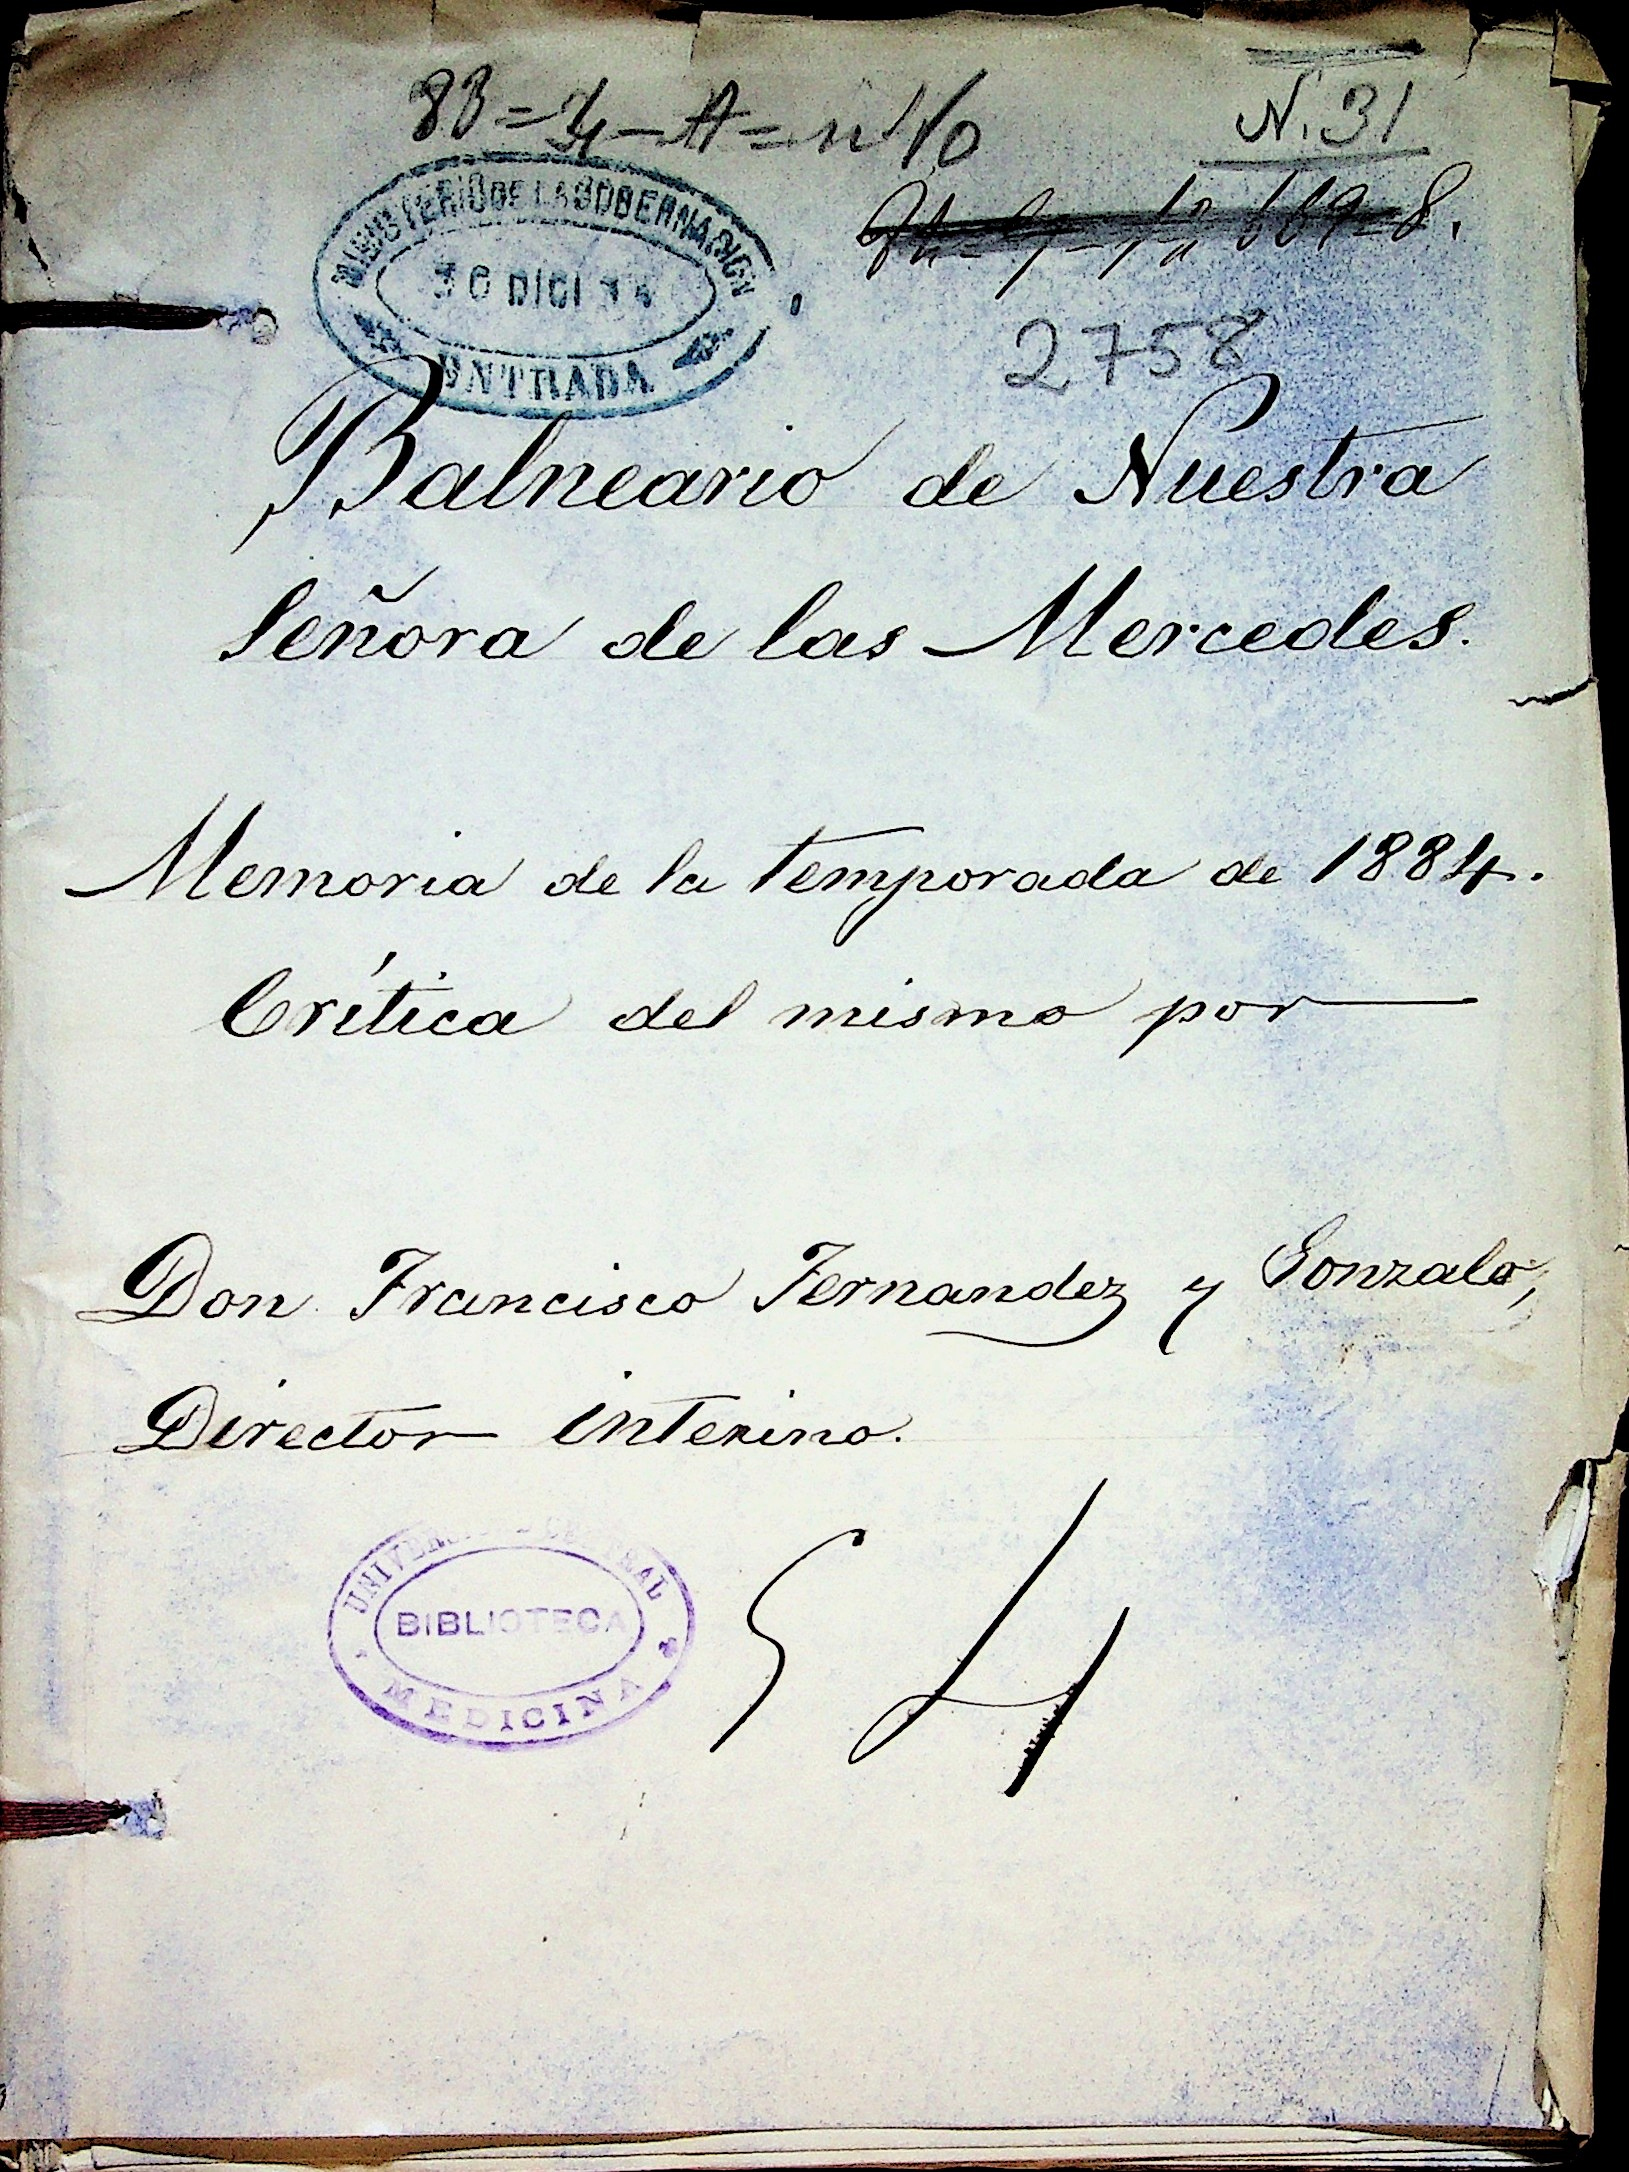 83=4-A=nº10
N. 31
MINISTERIO DE LA GOBERNACION
30 DICI 84
ENTRADA
2758
Balneario de Nuestra
Señora de las Mercedes.
Memoria de la temporada de 1884.
Crítica del mismo por
Don Francisco Fernandez y Gonzalo,
Director interino.
BIBLIOTECA
MEDICINA